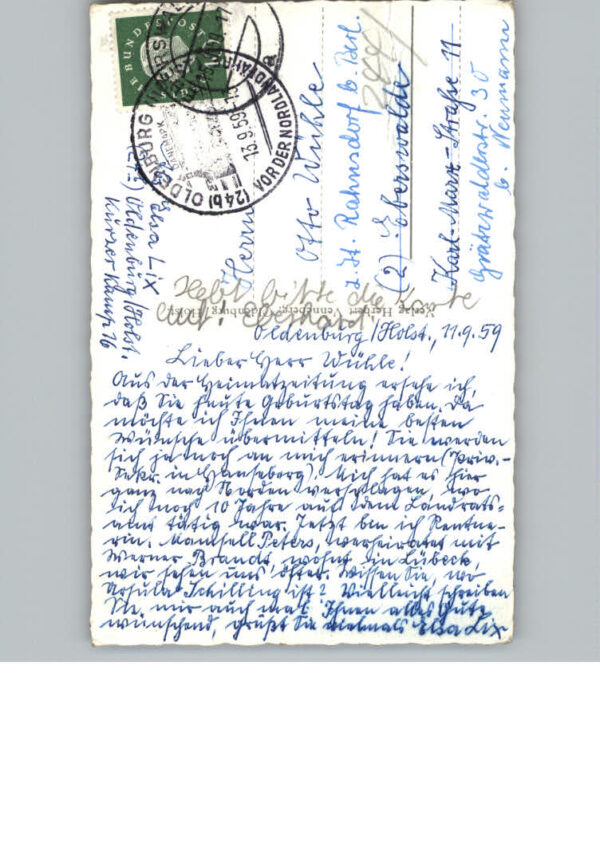 E BUNDESPOST
(24b) OLDENBURG
VOR DER NORDLANDFAHRT
13.9.59
Elsa Lix
Oldenburg/Holst.
Kurzer Kamp 16
Herrn
Otto Wühle
z. Zt. Rahnsdorf b. Berl.
(2) Eberswalde
Karl-Marx-Straße 11
Grätzwalderstr. 30
b. Neumann
Hebt bitte die Karte
auf! Eberhard
Verlag Herbert Venneberg, Oldenburg/Holst.
Oldenburg/Holst., 11.9.59
Lieber Herr Wühle!
Aus der Heimatzeitung ersehe ich,
daß Sie heute Geburtstag haben. Da
möchte ich Ihnen meine besten
Wünsche übermitteln! Sie werden
sich ja noch an mich erinnern (Priv.-
Sekr. in Hanseberg). Mich hat es hier
ganz nach Norden verschlagen, wo
ich noch 10 Jahre auf dem Landrats-
amt tätig war. Jetzt bin ich Rentne-
rin. Mamsell Peters, verheiratet mit
Werner Brandt, wohnt in Lübeck,
wir sehen uns öfter. Wissen Sie, wo
Ursula Schilling ist? Vielleicht schreiben
Sie mir auch mal. Ihnen alles Gute
wünschend, grüßt Sie vielmals Elsa Lix